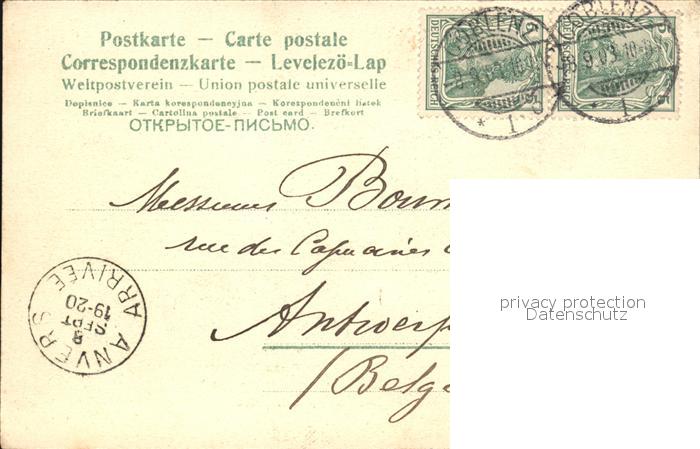 Postkarte — Carte postale
Correspondenzkarte — Levelező-Lap
Weltpostverein — Union postale universelle
Dopisnice — Karta korespondencyjna — Korespondenční lístek
Briefkaart — Cartolina postale — Post card — Brefkort
ОТКРЫТОЕ-ПИСЬМО.
COBLENZ
COBLENZ
Messieurs
rue des Capucines
Antwerp
(Belg
ANVERS
8
SEPT
19-20
ARRIVÉE
privacy protection
Datenschutz